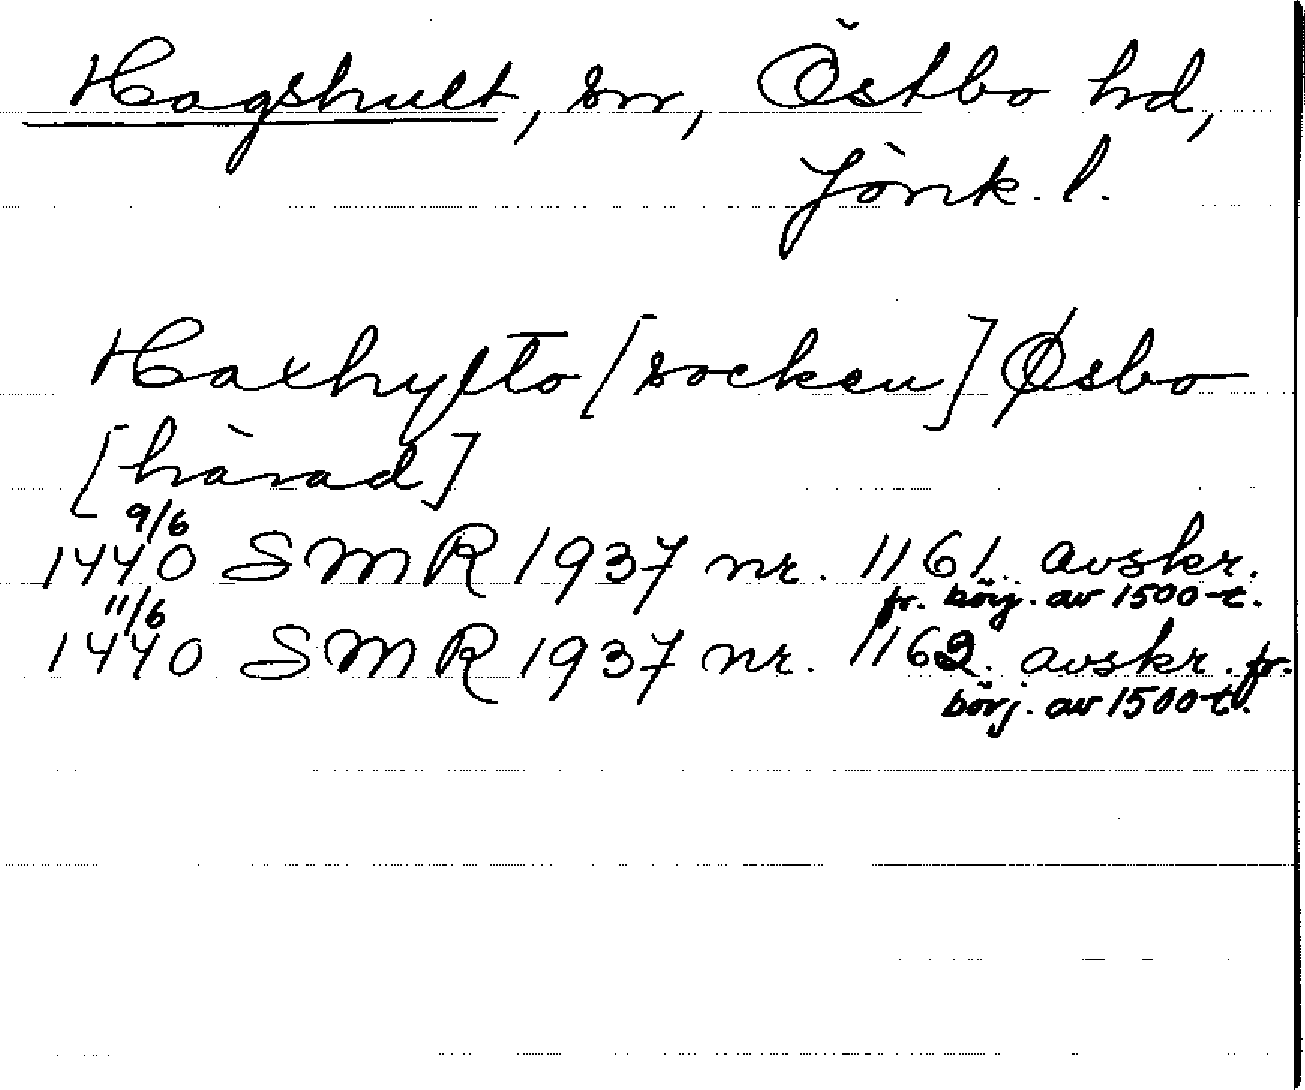 Hagshult, sn, Östbo hd,
Jönk. l.
Haxhyłto [socken] Øsbo
[härad]
9/6
1440 SMR 1937 nr. 1161. avskr.
fr. börj. av 1500-t.
11/6
1440 SMR 1937 nr. 1162. avskr. fr.
börj. av 1500-t.